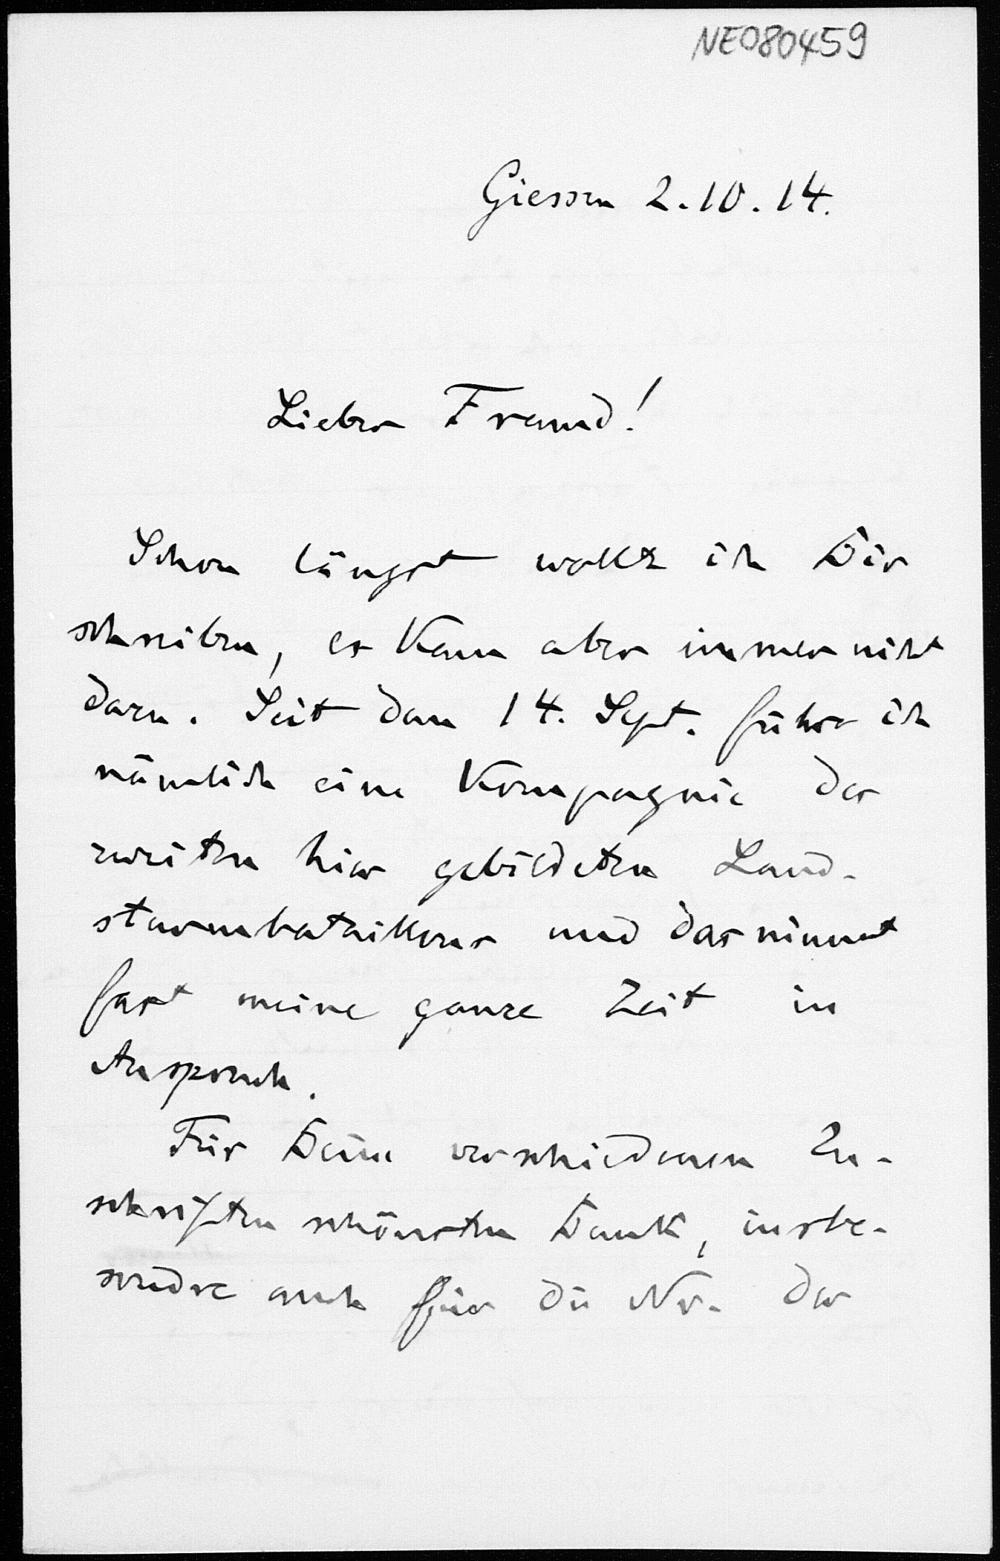 NE080459
Giessen 2.10.14.
Lieber Freund!
Schon längst wollte ich Dir
schreiben, es kam aber immer nicht
dazu. Seit dem 14. Sept. führe ich
nämlich eine Kompagnie des
zweiten hier gebildeten Land-
sturmbataillons und das nimmt
fast meine ganze Zeit in
Anspruch.
Für Deine verschiedenen Zu-
schriften schönsten Dank, insbe-
sondre auch für die Nr. der